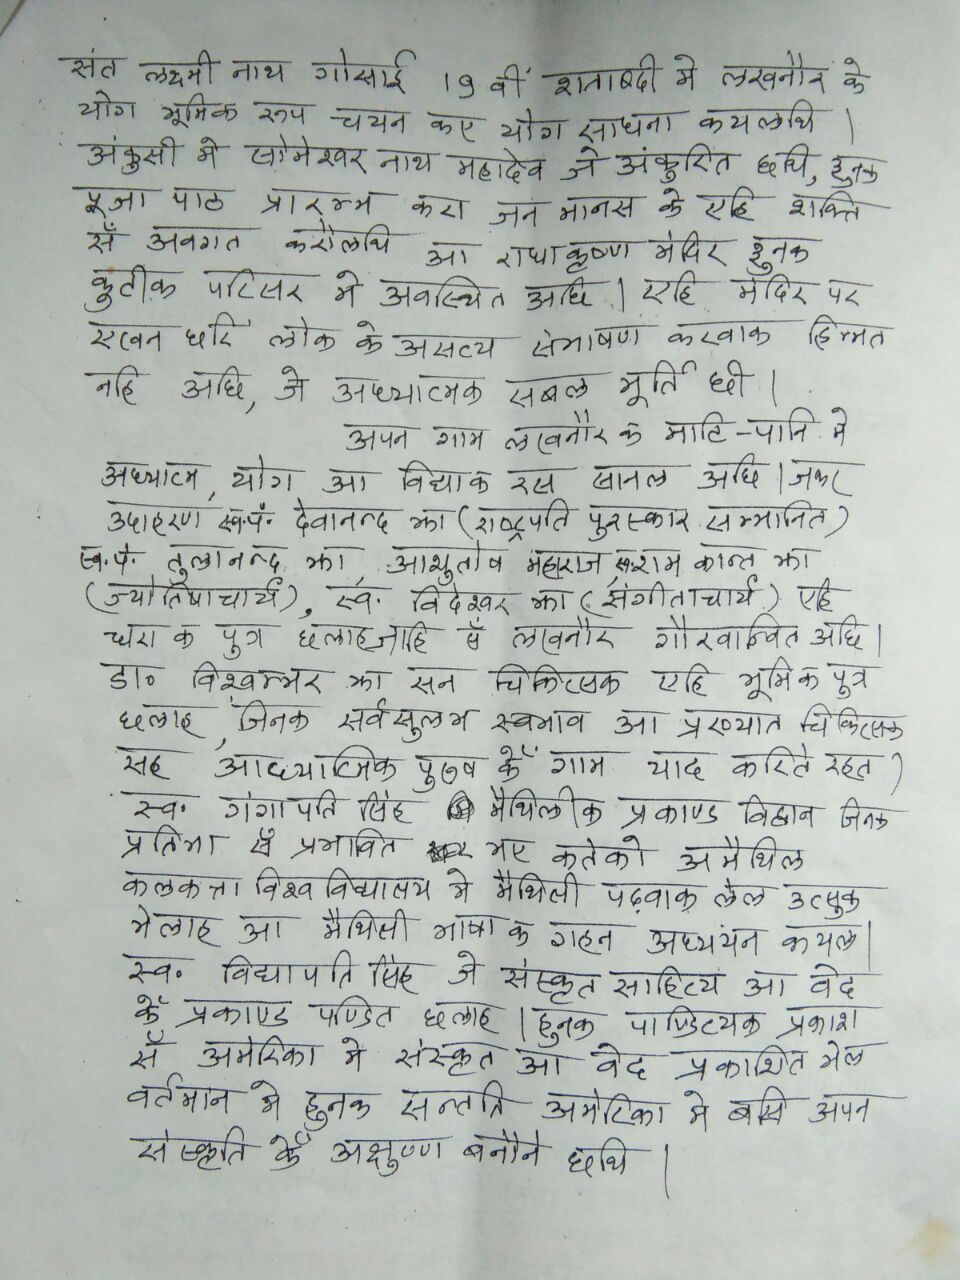 संत लक्ष्मी नाथ गोसाई 19 वीं शताब्दी मे लखनौर के
योग भूमिक रूप चयन कए योग साधना कयलथि ।
अंकुसी मे सोमेश्वर नाथ महादेव जे अंकुरित छथि, हुनक
पूजा पाठ प्रारम्भ करा जन मानस के एहि शक्ति
सँ अवगत करौलथि आ राधाकृष्ण मंदिर हुनक
कुटीक परिसर मे अवस्थित अछि । एहि मंदिर पर
एखन धरि लोक के असत्य संभाषण करबाक हिम्मत
नहि अछि, जे अध्यात्मक सबल मूर्ति छी ।
अपन गाम लखनौर क माटि-पानि मे
अध्यात्म, योग आ विद्याक रस सानल अछि । जकर
उदाहरण स्व.पं. देवानन्द झा (राष्ट्रपति पुरस्कार सम्मानित)
स्व.पं. तुलानन्द झा आशुतोष महाराज, स्व. राम कान्त झा
(ज्योतिषाचार्य), स्व. विदेश्वर झा (संगीताचार्य) एहि
धरा क पुत्र छलाह जाहि सँ लखनौर गौरवान्वित अछि ।
डा० विश्वम्भर झा सन चिकित्सक एहि भूमिक पुत्र
छलाह, जिनक सर्वसुलभ स्वभाव आ प्रख्यात चिकित्सक
सह आध्यात्मिक पुरुष कें गाम याद करिते रहत ।
स्व. गंगापति सिंह मैथिलीक प्रकाण्ड विद्वान जिनक
प्रतिभा सँ प्रभावित भए कतेको अमैथिल
कलकत्ता विश्वविद्यालय मे मैथिली पढ़वाक लेल उत्सुक
भेलाह आ मैथिली भाषा क गहन अध्ययन कयल ।
स्व. विद्यापति सिंह जे संस्कृत साहित्य आ वेद
कें प्रकाण्ड पण्डित छलाह । हुनक पाण्डित्यक प्रकाश
सँ अमेरिका मे संस्कृत आ वेद प्रकाशित भेल
वर्तमान मे हुनक सन्तति अमेरिका मे बसि अपन
संस्कृति कें अक्षुण्ण बनौने छथि ।